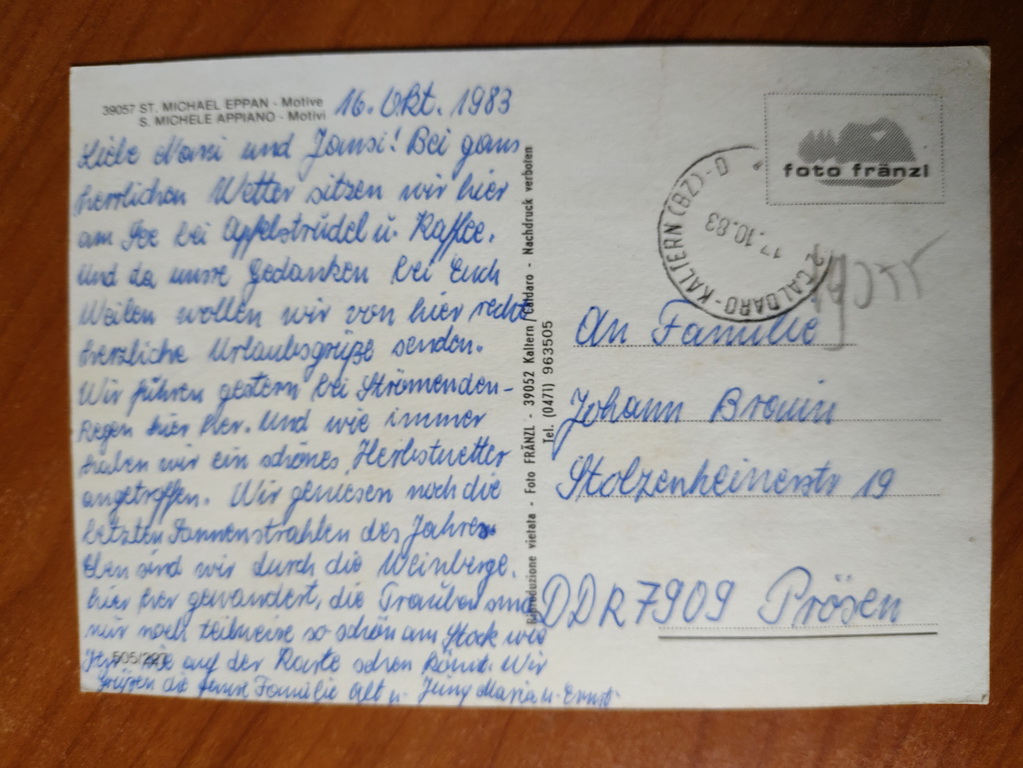 39057 ST. MICHAEL EPPAN - Motive
S. MICHELE APPIANO - Motivi
16. Okt. 1983
Liebe Nanni und Jansi! Bei ganz
herrlichen Wetter sitzen wir hier
am See bei Apfelstrudel u. Kaffee.
Und da unsre Gedanken bei Euch
Weilen wollen wir von hier recht
herzliche Urlaubsgrüße senden.
Wir führen gestern bei Strömenden-
Regen hier her. Und wie immer
haben wir ein schönes Herbstwetter
angetroffen. Wir geniesen noch die
letzten Sonnenstrahlen des Jahres.
Eben sind wir durch die Weinberge
hier her gewandert, die Trauben sind
nur noch teilweise so schön am Stock wie
Ihr sie auf der Karte sehen könnt. Wir
grüßen die Familie Alt u. Jung Maria u. Ernst
505/227
Riproduzione vietata - Foto FRÄNZL - 39052 Kaltern/Caldaro - Nachdruck verboten
Tel. (0471) 963505
foto fränzl
CALDARO-KALTERN (BZ)-D
17.10.83
An Familie
Johann Braun
Stolzenheinerstr 19
DDR 7909 Prösen